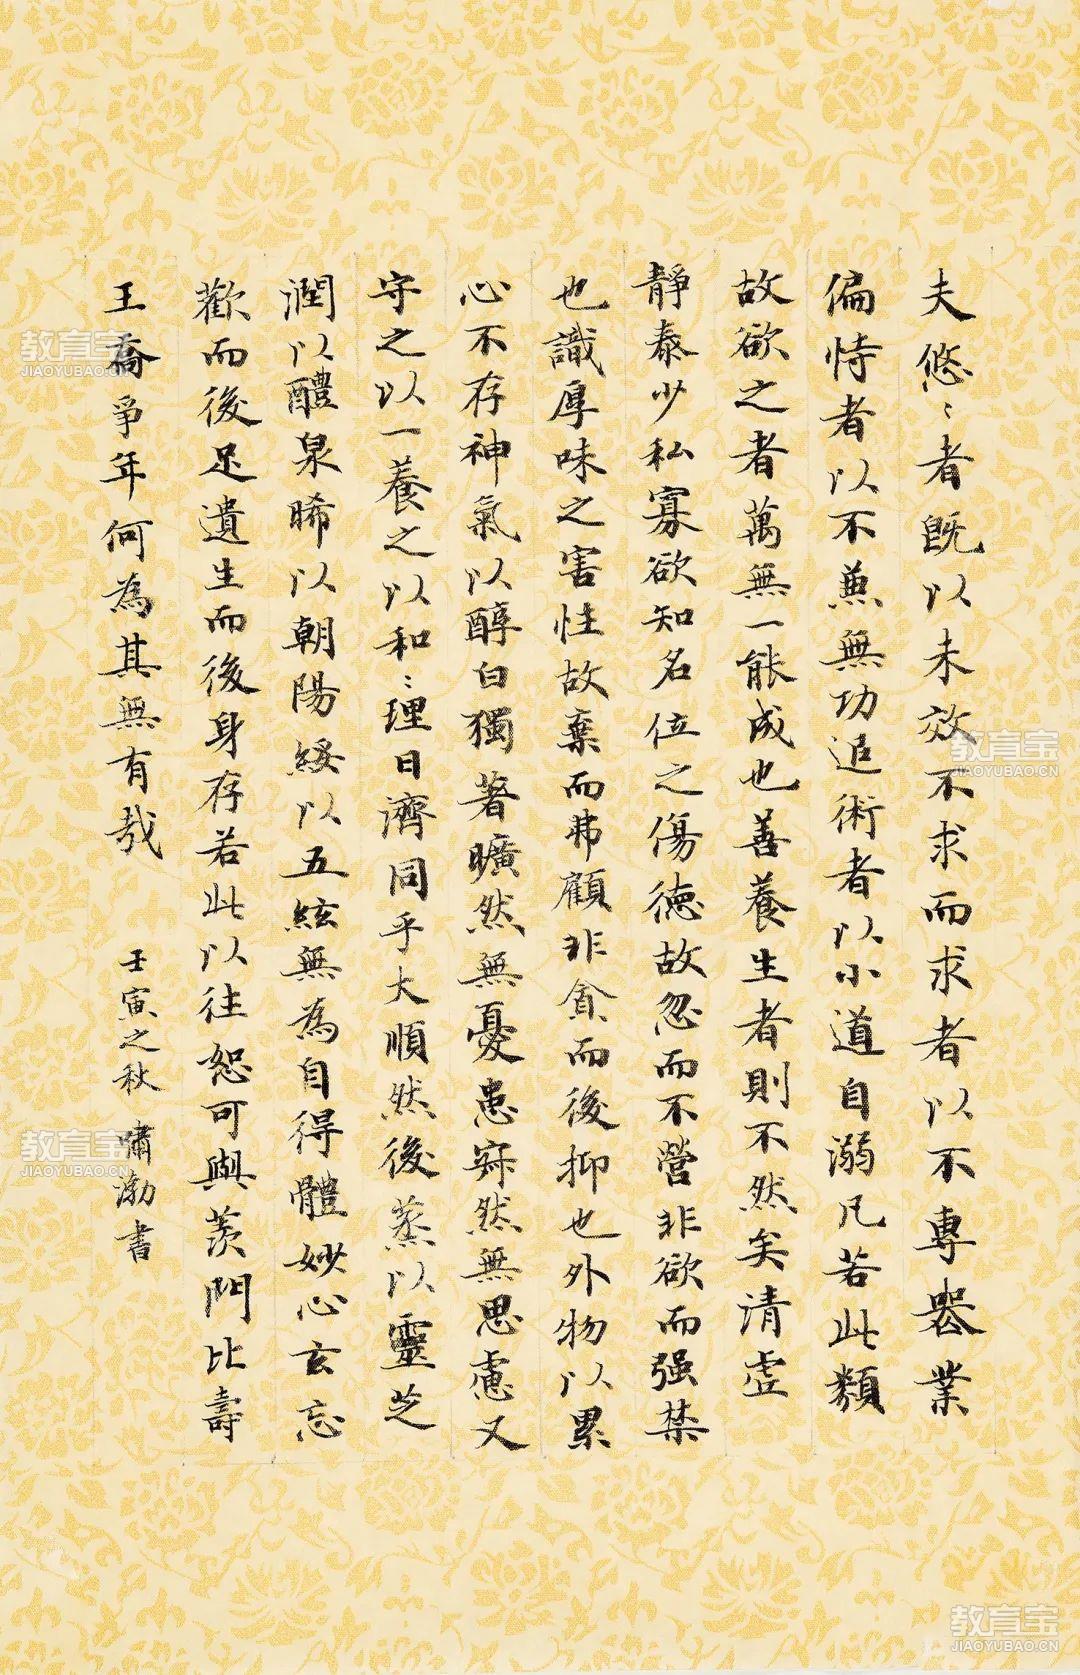 夫悠〻者既以未效不求而求者以不專喪業
偏恃者以不兼無功追術者以小道自溺凡若此類
故欲之者萬無一能成也善養生者則不然矣清虛
靜泰少私寡欲知名位之傷德故忽而不營非欲而强禁
也識厚味之害性故棄而弗顧非貪而後抑也外物以累
心不存神氣以醇白獨著曠然無憂患寂然無思慮又
守之以一養之以和〻理日濟同乎大順然後蒸以靈芝
潤以醴泉晞以朝陽綏以五絃無為自得體妙心玄忘
歡而後足遺生而後身存若此以往恕可與羨門比壽
王喬爭年何為其無有哉
壬寅之秋 嘯渤書
教育宝
JIAOYUBAO.CN
教育宝
JIAOYUBAO.CN
教育宝
JIAOYUBAO.CN
教育宝
JIAOYUBAO.CN